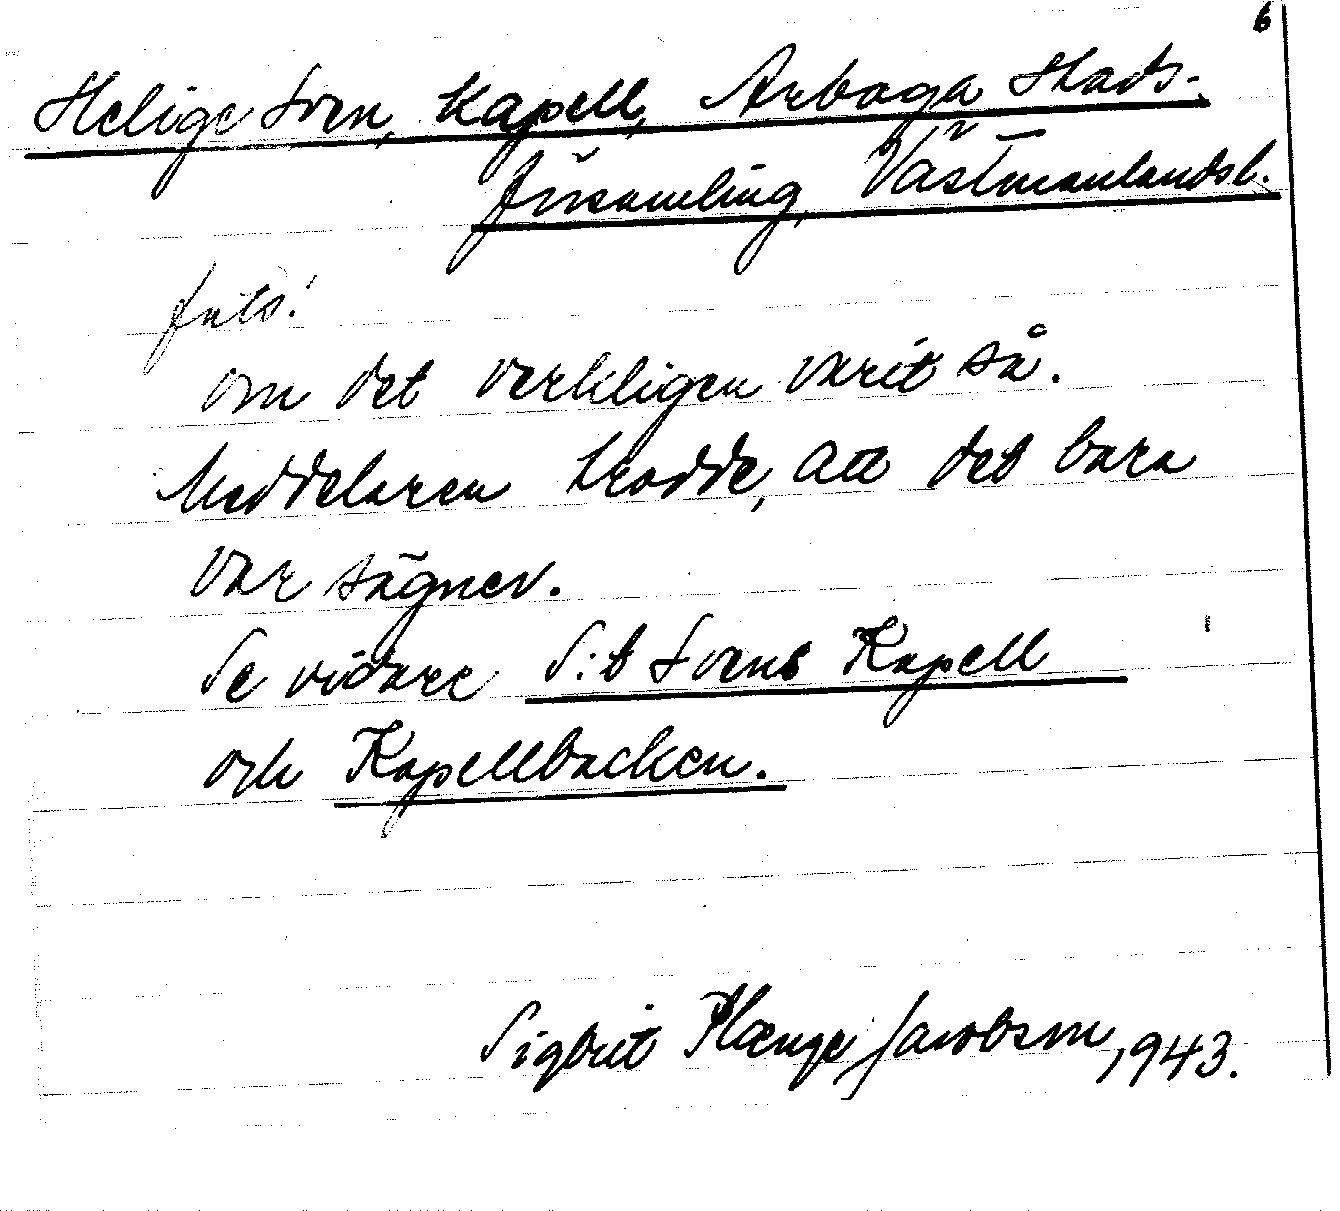 6
Helige Sven, Kapell, Arboga Stads-
församling, Västmanlandsl.
forts!
om det verkligen varit så.
Meddelaren trodde, att det bara
var sägner.
Se vidare S:t Svens Kapell
och Kapellbacken.
Sigbrit Plænge Jacobson, 1943.